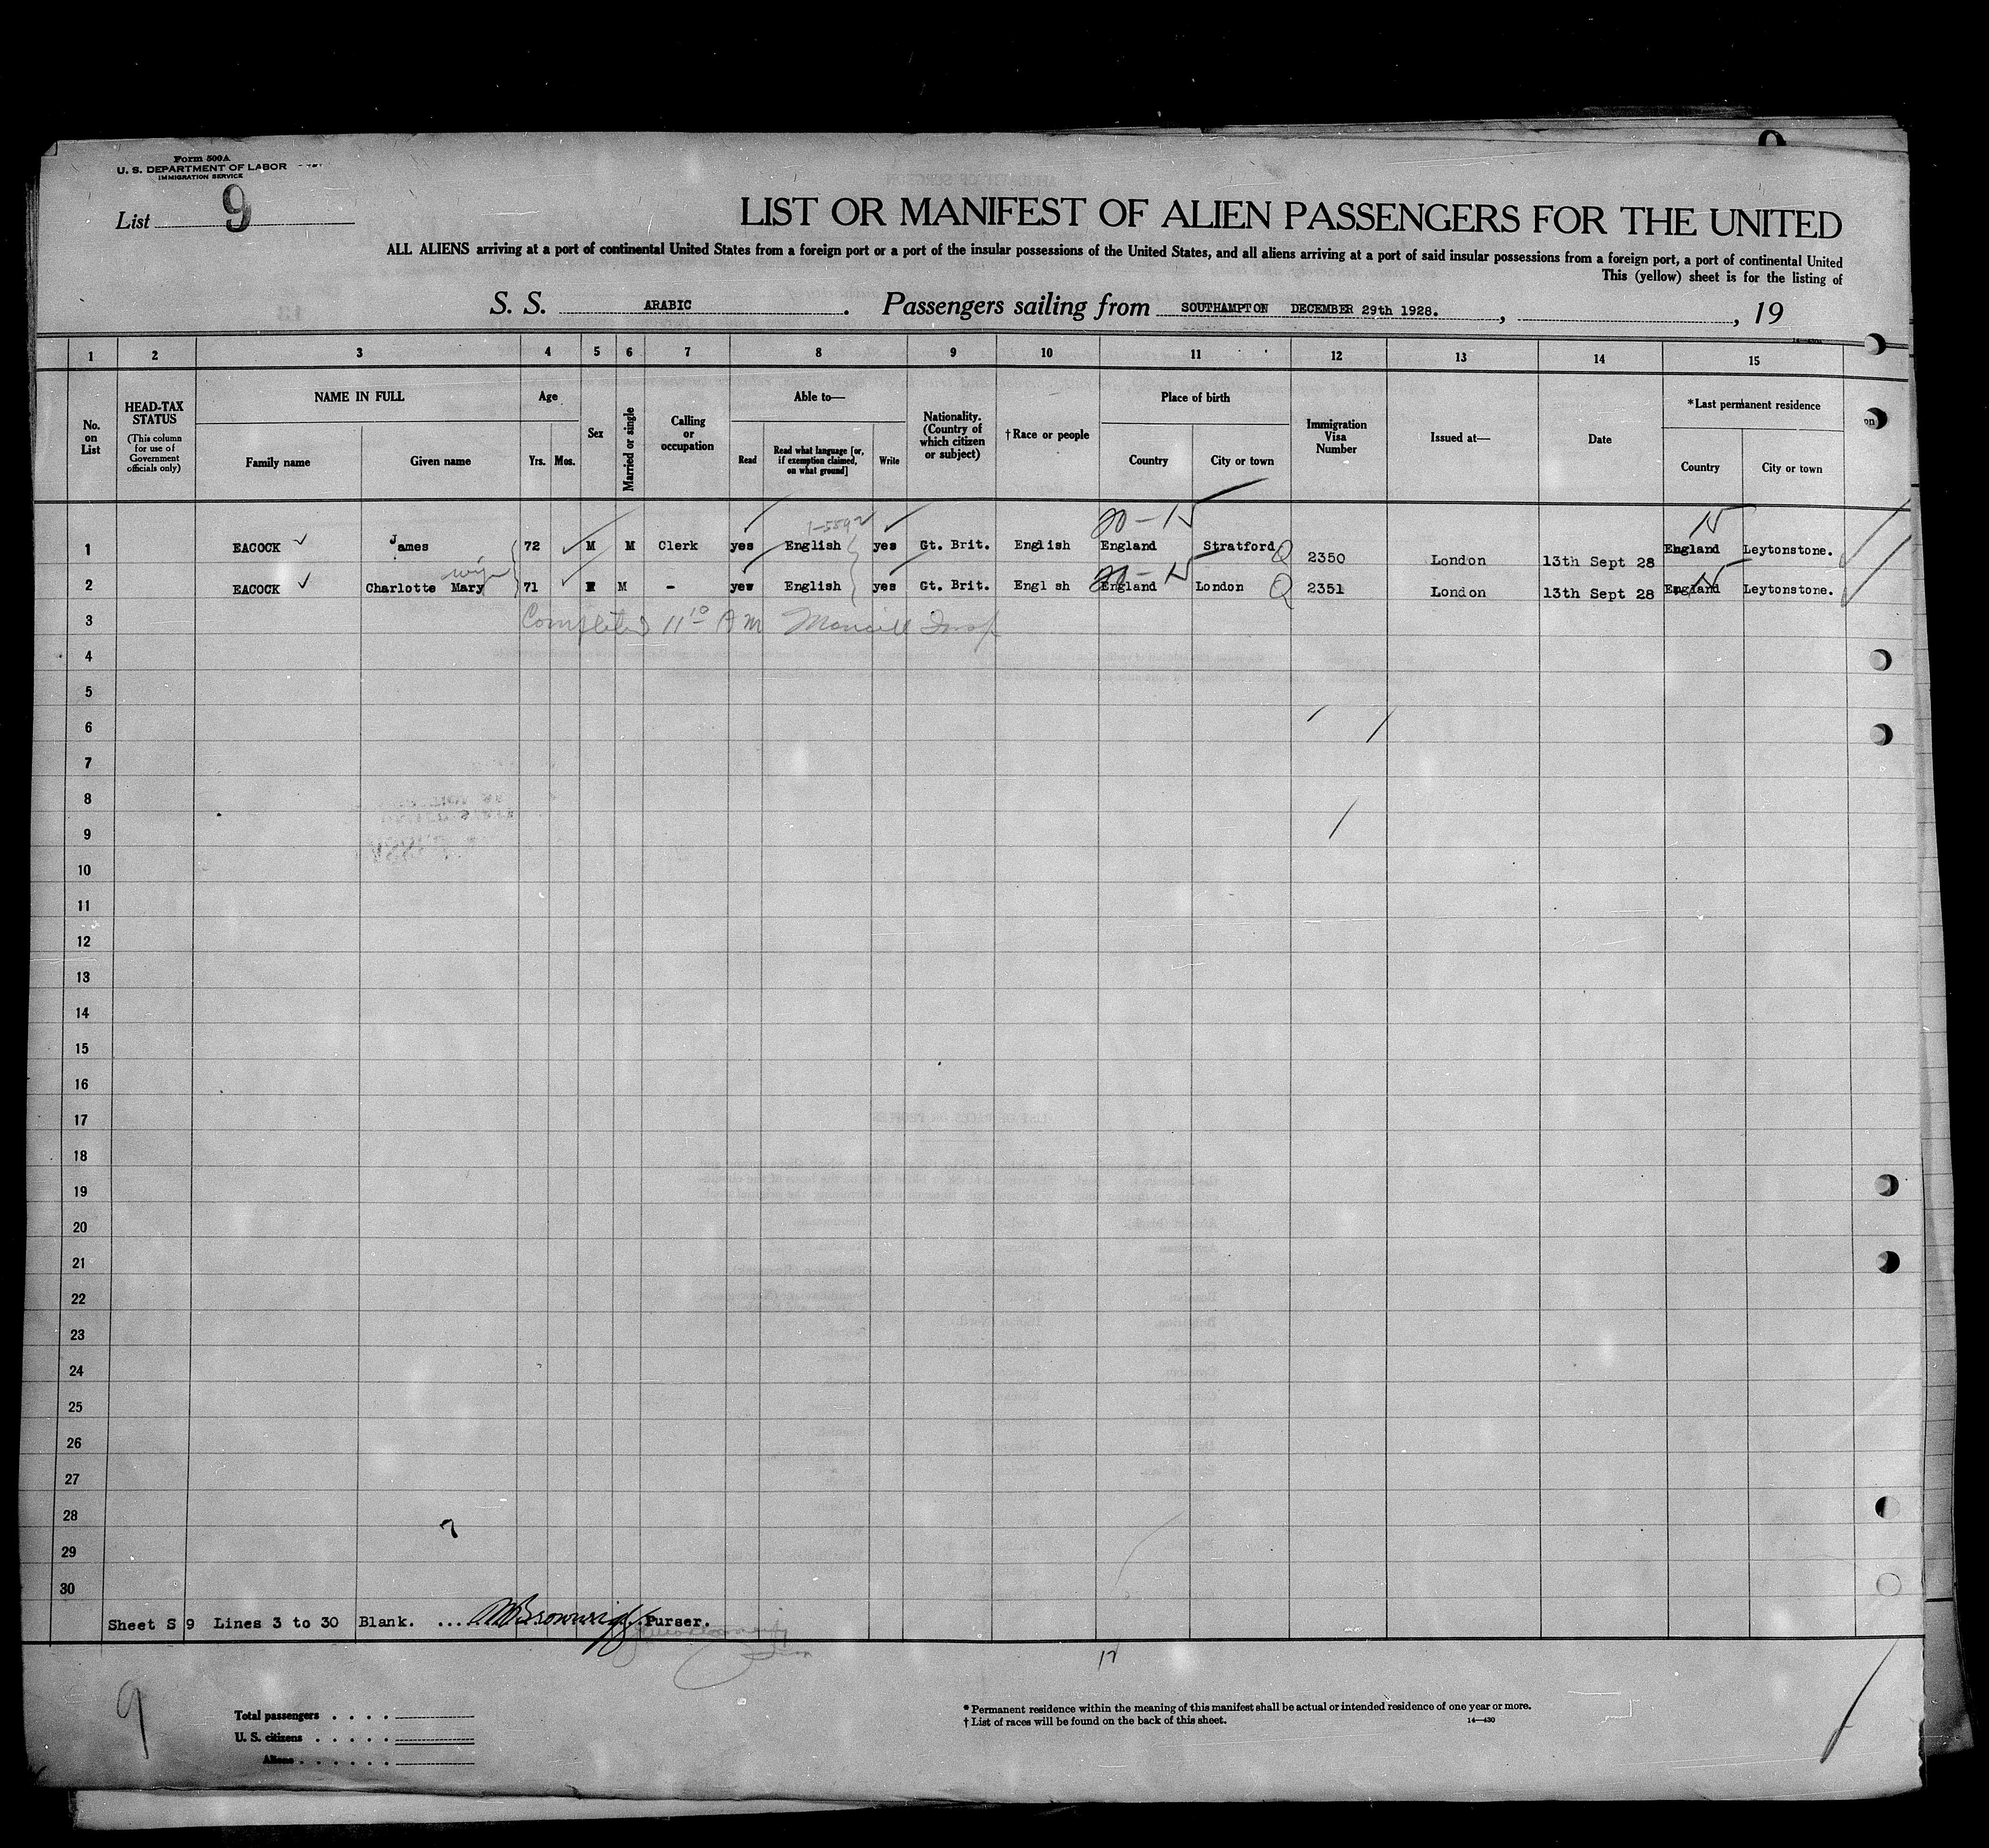 Form 500A
U. S. DEPARTMENT OF LABOR
IMMIGRATION SERVICE
List 9
LIST OR MANIFEST OF ALIEN PASSENGERS FOR THE UNITED
ALL ALIENS arriving at a port of continental United States from a foreign port or a port of the insular possessions of the United States, and all aliens arriving at a port of said insular possessions from a foreign port, a port of continental United
This (yellow) sheet is for the listing of
S. S. ARABIC. Passengers sailing from SOUTHAMPTON DECEMBER 29th 1928. , , 19
1 2 3 4 5 6 7 8 9 10 11 12 13 14 15
No. on List
HEAD-TAX STATUS
(This column for use of Government officials only)
NAME IN FULL
Family name
Given name
Age
Yrs. Mos.
Sex
Married or single
Calling or occupation
Able to—
Read
Read what language [or, if exemption claimed, on what ground]
Write
Nationality. (Country of which citizen or subject)
†Race or people
Place of birth
Country
City or town
Immigration Visa Number
Issued at—
Date
*Last permanent residence
Country
City or town
1 EACOCK James 72 M M Clerk yes English yes Gt. Brit. English England Stratford 2350 London 13th Sept 28 England Leytonstone.
wife
2 EACOCK Charlotte Mary 71 F M - yes English yes Gt. Brit. Engl sh England London 2351 London 13th Sept 28 England Leytonstone.
3 Completed 11 10 AM
4
5
6
7
8
9
10
11
12
13
14
15
16
17
18
19
20
21
22
23
24
25
26
27
28
29
30
Sheet S 9 Lines 3 to 30 Blank. .... Purser.
9
Total passengers . . . .
U. S. citizens . . . . .
Aliens . . . . . .
* Permanent residence within the meaning of this manifest shall be actual or intended residence of one year or more.
† List of races will be found on the back of this sheet.
14—430